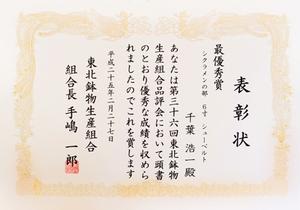 表彰状
最優秀賞
シクラメンの部 6寸 シューベルト
千葉 浩一殿
あなたは第三十六回東北鉢物
生産組合品評会において頭書
のとおり優秀な成績を収めら
れましたのでこれを賞します
平成二十五年二月二十七日
東北鉢物生産組合
組合長 手嶋 一郎